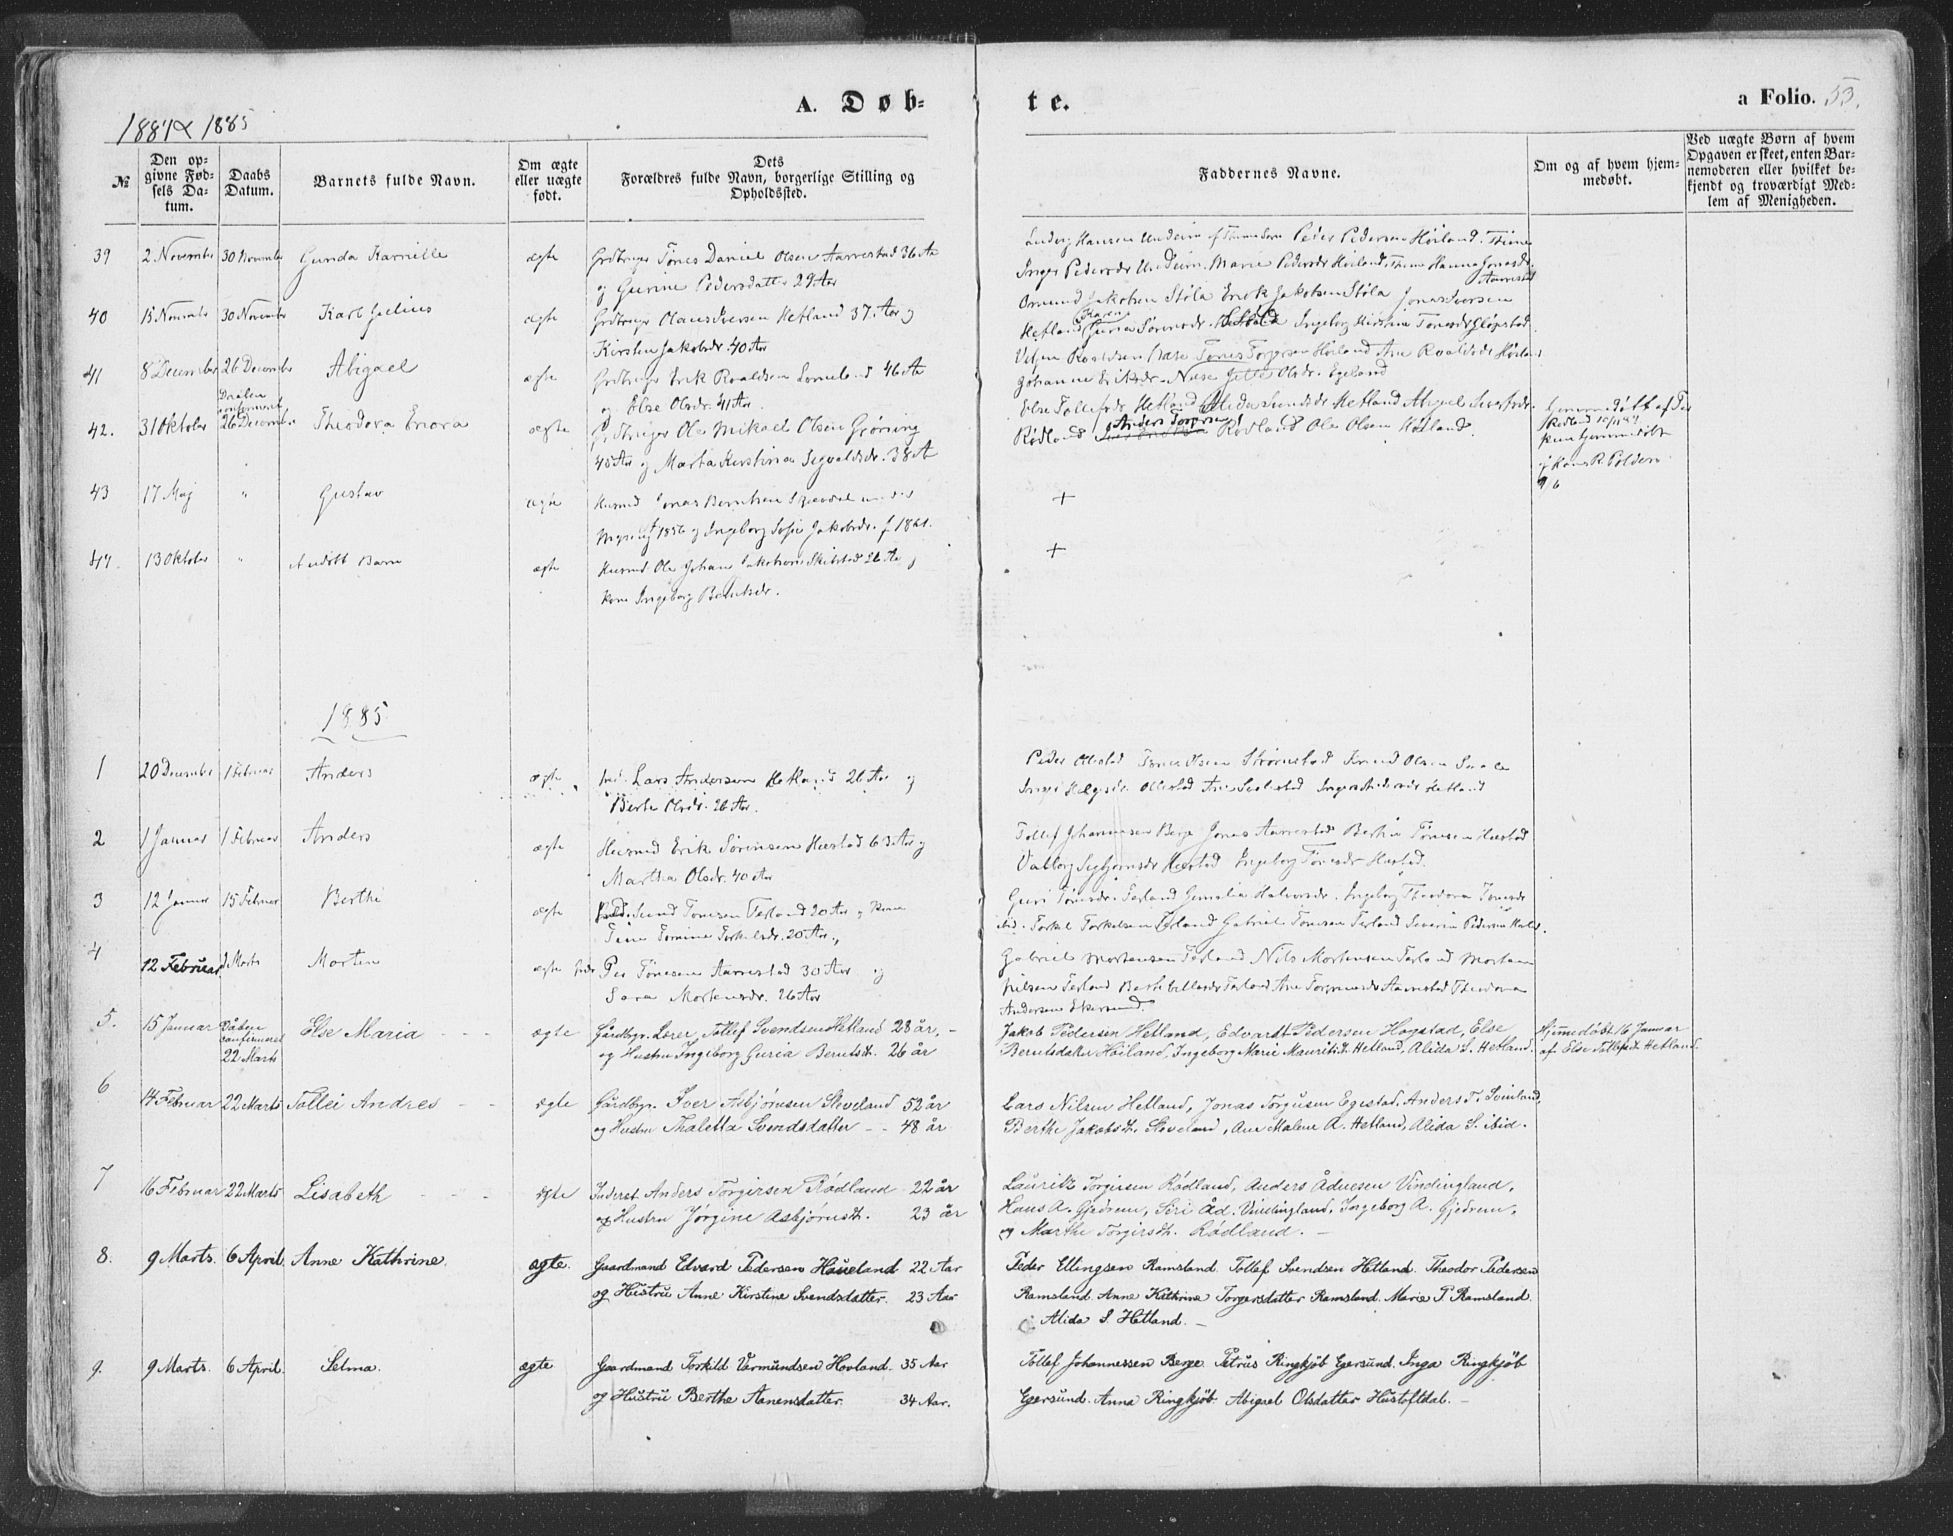 A. Døb-
te.
a Folio. 53.
1884 & 1885
№
Den op-
givne Fød-
sels Da-
tum.
Daabs
Datum.
Barnets fulde Navn.
Om ægte
eller uægte
født.
Dets
Forældres fulde Navn, borgerlige Stilling og
Opholdssted.
Faddernes Navne.
Om og af hvem hjem-
medøbt.
Ved uægte Børn af hvem
Opgaven er skeet, enten Bar-
nemoderen eller hvilket be-
kjendt og troværdigt Med-
lem af Menigheden.
39 2 November 30 November Gunda Karnille ægte Grdbruger Tønes Daniel Olsen Aarrestad 36 Aar
og Gurine Pedersdatter 29 Aar
Peder Pedersen Høiland
Inger Pedersdr Undeim. Marie Pedersdr Høiland. Hanna Jonasdr.
Aarrestad
40 15 November 30 November Karl Julius ægte Grdbruger Olaus Iversen Hetland 37 Aar og
Kirsten Jakobsdr. 40 Aar
Omund Jakobsen Støla Erik Jakobsen Støla Jonas Iversen
Hetland Karen Guria Sørensdr. Ingeborg Kirstine Tønesdr
41 8 December 26 December Abigael ægte Grdbruger Erik Roaldsen 46 Aar
og Else Olsdr. 41 Aar.
Roaldsen Tønes Torgersen Høiland Ane Roaldsdr Høiland
Johanne Eriksdr. Jette Olsdr. Egeland
42. 31 Oktober Daaben
confirmeret
26 December Theodora Enora ægte Ole Mikael Olsen Grøning
45 Aar og Marta Kirstina Segvaldsdr. 38 Aar
Else Tollefsdr Hetland Alida Svendsdr Hetland Abigael Sivertsdr.
Rødland Anders Torgersen Rødland Ole Olsen Hetland
Hjemmedøbt af
Rødland
hjemmedøbt
43 17 Maj " Gustav ægte Husmd Jonas Berntsen
1856 og Ingeborg Sofie Jakobsdr. f 1861.
+
44. 13 Oktober " Udøbt Barn ægte Husmd. Ole Johan Jakobsen Skibstad 26 Aar og
Kone Ingeborg Berntsdr.
+
1885
1 20 December 1 Februar Anders ægte Lars Andersen Hetland 26 Aar og
Berte Olsdr. 26 Aar.
Peder Ollestad Knud Olsen
Ollestad Hetland
2 1 Januar 1 Februar Anders ægte Husmd Erik Sørensen Hustad 63 Aar og
Martha Olsdr. 40 Aar
Tollef Johannesen Berge Jonas Aarrestad Bertin Tønesen Hustad
Valborg Segbjørnsdr Hustad Ingeborg Tønesdr Hustad.
3 12 Januar 15 Februar Berthe ægte Tønesen Terland 20 Aar og Kone
Tomine Torkelsdr. 20 Aar.
Guri Tønesdr. Terland Halvorsdr. Ingeborg Theodora Tønesdr
ibid. Torkel Torkelsen Terland Gabriel Tønesen Terland Severin Pedersen
4 12 Februar 1 Marts Morten ægte Per Tønesen Aarrestad 30 Aar og
Sara Mortensdr. 26 Aar
Gabriel Mortensen Terland Nils Mortensen Terland Morten
Nilsen Terland Terland Ane Aarrestad Theodora
Andersen Ekersund.
5. 15 Januar Dåben
confirmeret
22 Marts Else Maria - - - ægte Gårdbgr. Lærer, Tollef Svendsen Hetland 28 år, -
og Hustru Ingeborg Guria Berntsdt. 26 år
Jakob Pedersen Hetland, Edvardt Pedersen Hogstad, Else
Berntsdater Høiland, Ingeborg Marie Mauritsdt. Hetland, Alida S. Hetland.
Hjemmedøbt 16 Januar
af Else Tollefsdt. Hetland.
6 14 Februar 22 Marts Tollei Andres - - ægte Gårdbgr. Iver Asbjørnsen Sleveland 52 år
og Hustru Thaletta Svendsdatter - - 48 år
Lars Nilsen Hetland, Jonas Torgusen Egestad, Anders T. Svinland,
Berthe Jakobsdt. Sleveland, Ane Malene A. Hetland, Alida S. ibid.
7 16 Februar 22 Marts Lisabeth - - - ægte Inderst Anders Torgirsen Rødland - 22 år
og Hustru Jørgine Asbjørnsdt. 23 år
Lauritz Torgirsen Rødland, Anders Ådnesen Vindingland,
Hans A. Gjedrem, Siri Åd. Vindingland, Ingeborg A. Gjedrem,
og Marthe Torgirsdt. Rødland. -
8. 9 Marts. 6 April. Anne Kathrine. ægte. Gaardmand Edvard Pedersen Haveland 22 Aar
og Hustru Anne Kirstine Svendsdatter. 23 Aar
Peder Ellingsen Ramsland. Tollef Svendsen Hetland. Theodor Pedersen
Ramsland. Anne Kathrine Torgersdatter Ramsland. Marie P. Ramsland.
Alida S. Hetland. -
9. 9 Marts. 6 April. Selma. ægte Gaardmand Torkild Vermundsen Hovland. 35 Aar
og Hustru Berthe Aanensdatter. 34 Aar.
Tollef Johannessen Berge. Petrus Ringkjøb Egersund. Inga Ringkjøb
Egersund. Anna Ringkjøb. Abigael Olsdatter Hustoftdal. -